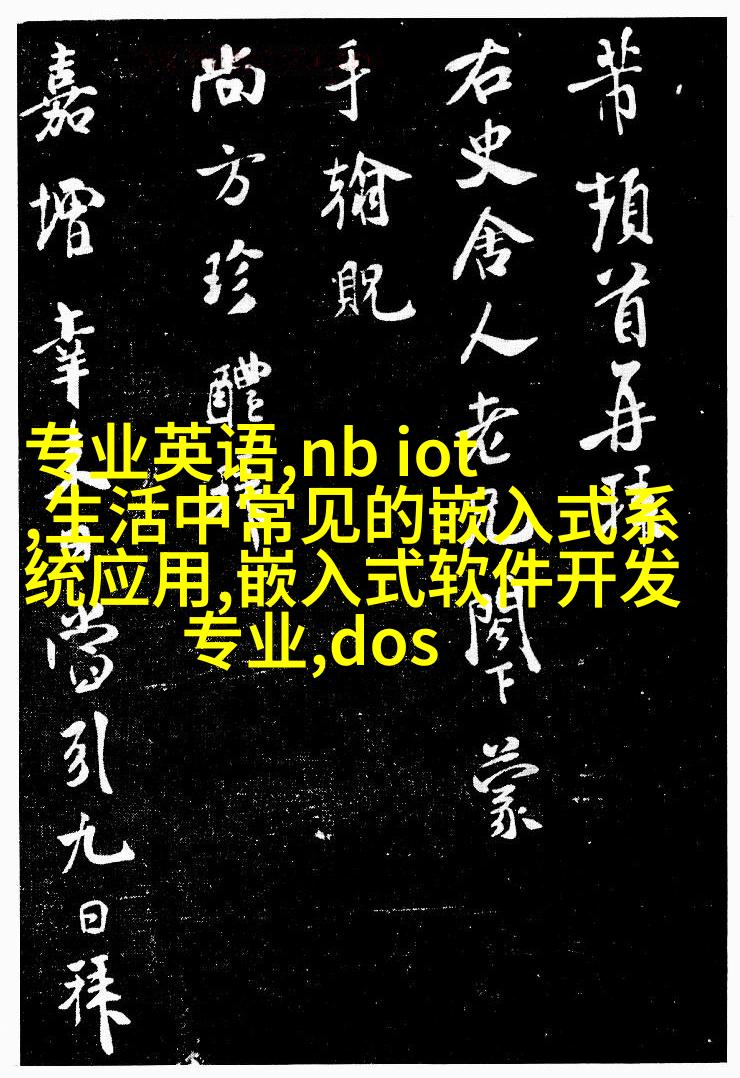 芾頓首再拜
右史舍人老兄閤下蒙
手翰貺
尚方珍醴
嘉增幸
當引九日拜
专业英语,nb iot
,生活中常见的嵌入式系
统应用,嵌入式软件开发
专业,dos